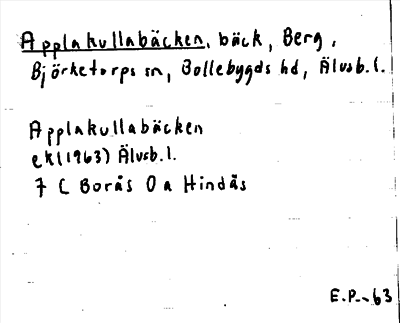 Applakullabäcken, bäck, Berg,
Björketorps sn, Bollebygds hd, Älvsb.l.
Applakullabäcken
ek(1963) Älvsb.l.
7 C Borås O a Hindås
E.P.-63